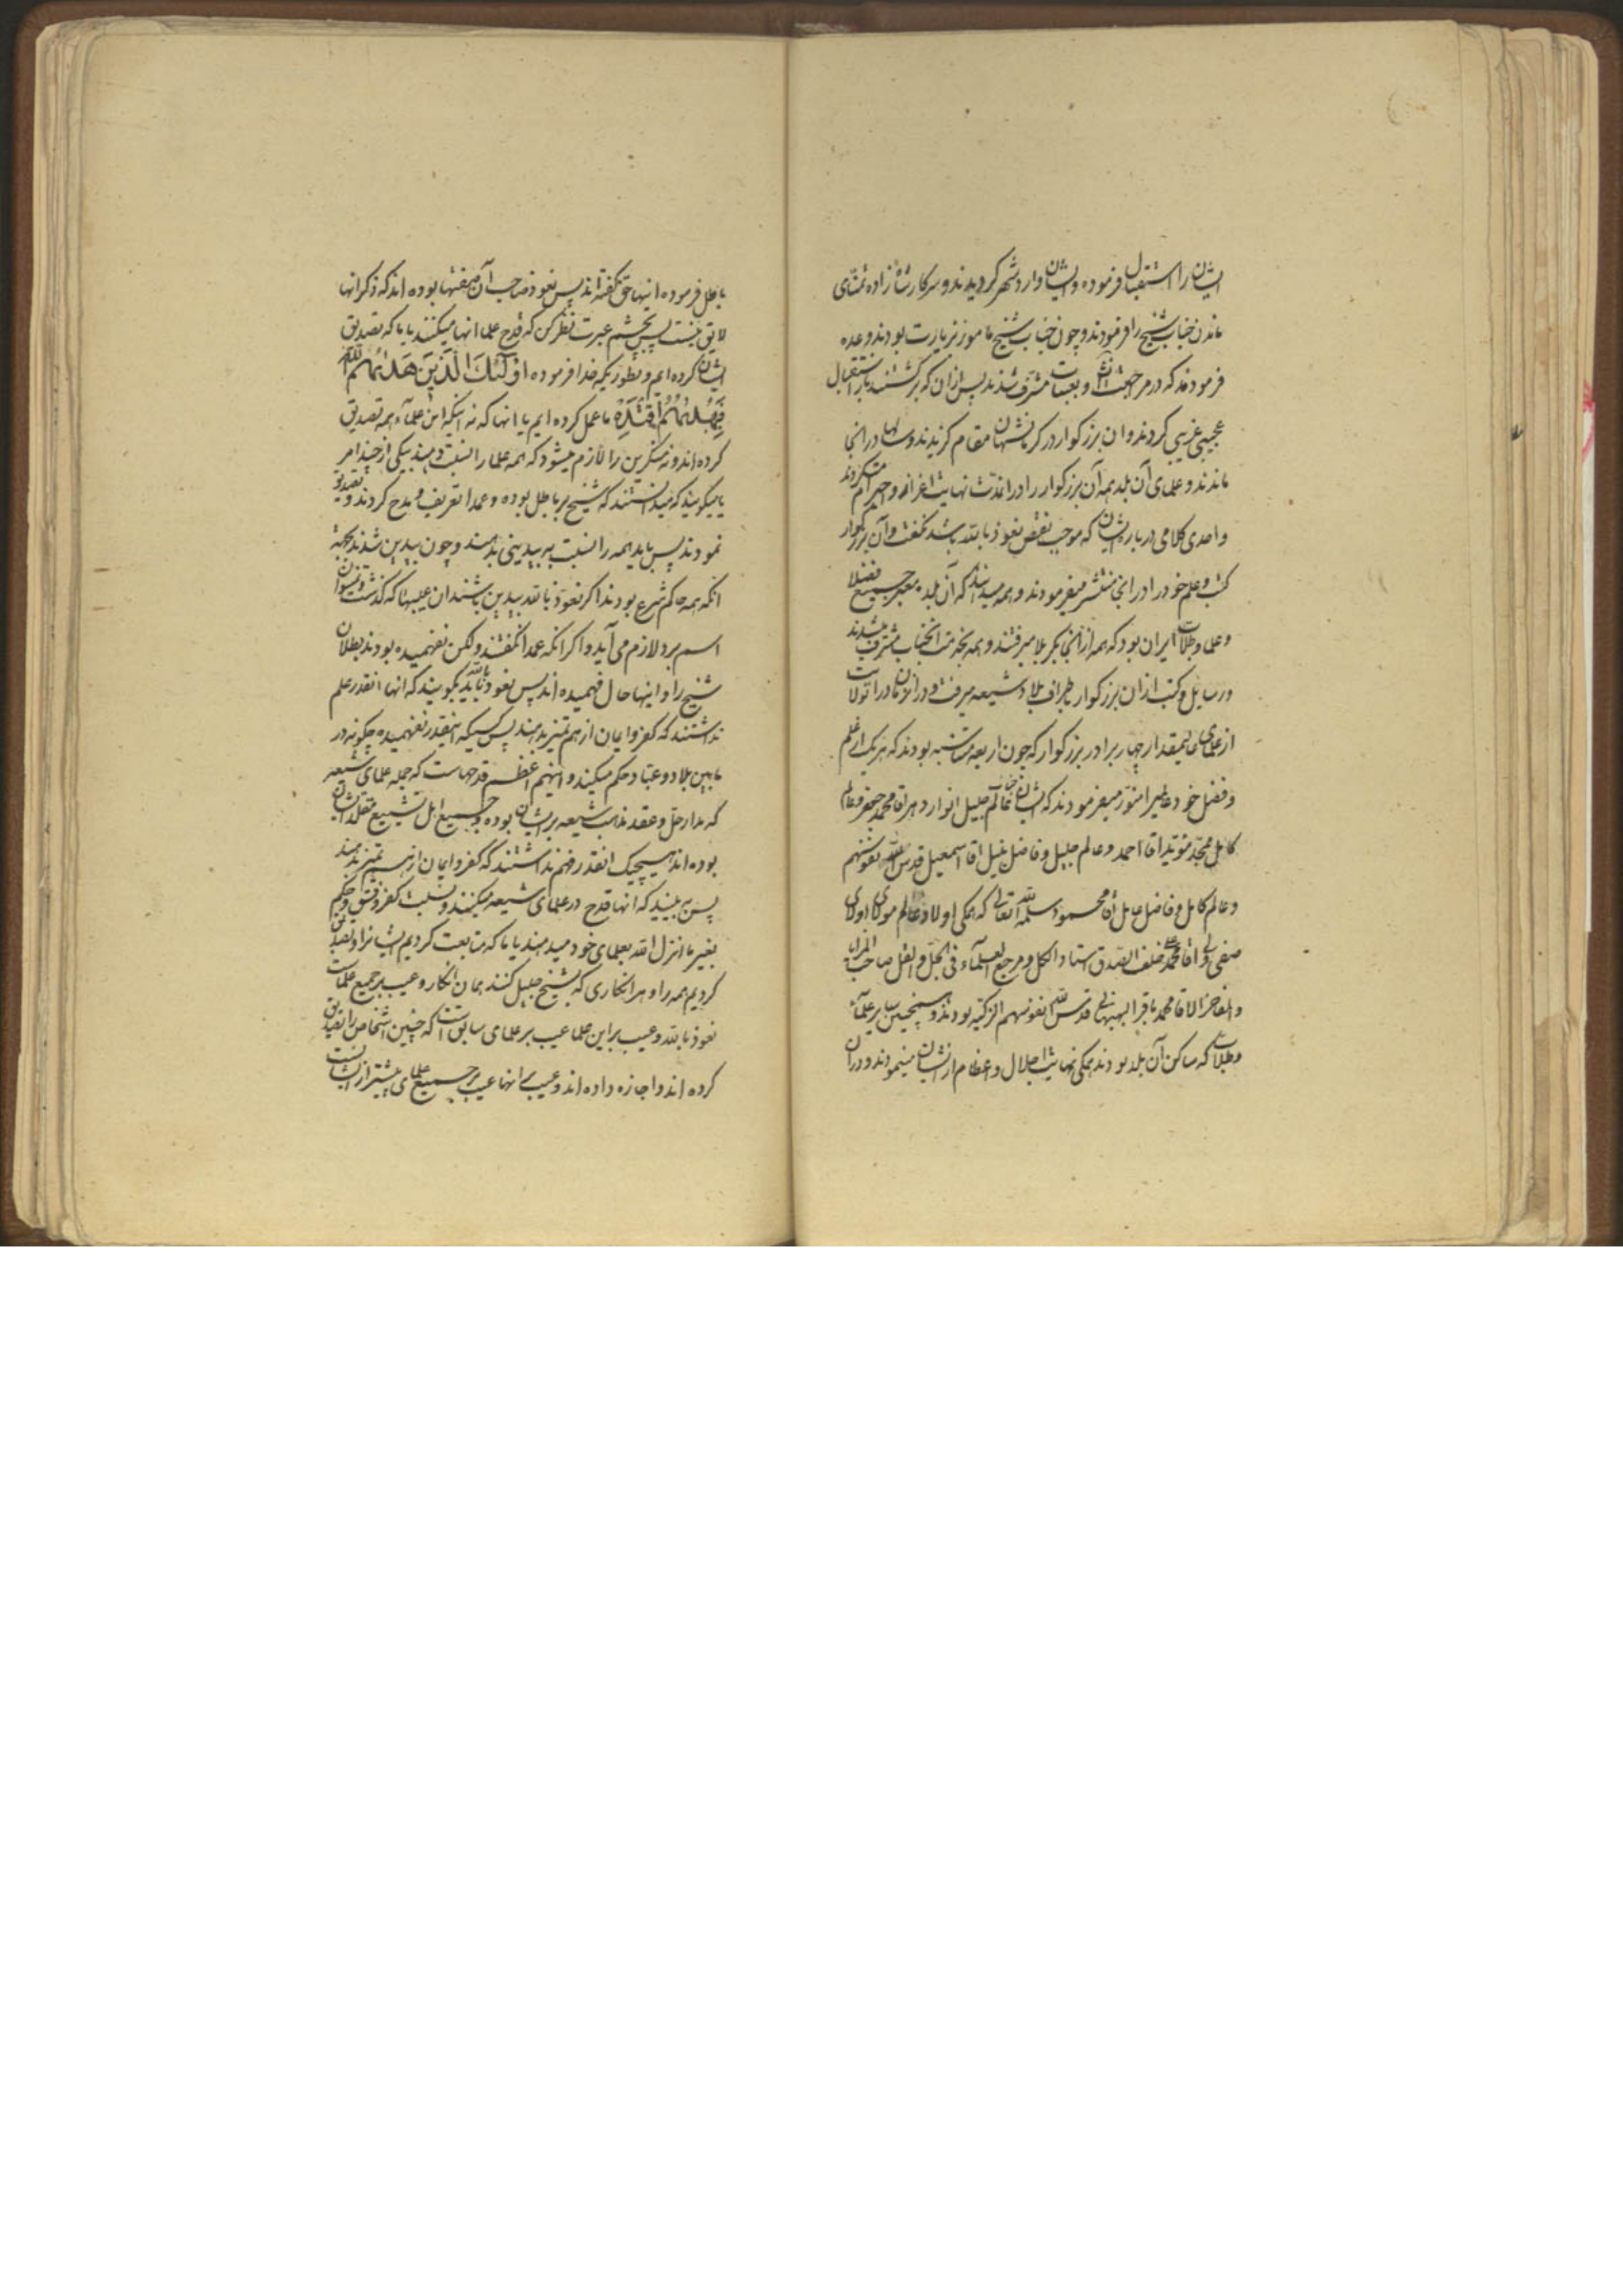 ایشان را استقبال فرموده و ایشان وارد شهر کردیدند و سرکار شاه زاده تمنّای
ماندن جناب شیخ را فرمودند و چون جناب شیخ مامور زیارت بودند وعده
فرمودند که در مراجعت و بعتبات مشرّف شدند پس از ان که برکشتند باز استقبال
عجیبی غریبی کردند و ان بزرکوار در کرمانشهان مقام کزیدند و سالها در انجا
ماندند و علمای آن بلد همه آن بزرکوار را در انمدت نهایت اعزاز و احترام میکردند
و احدی کلامی در باره ایشان که موجب نقص نعوذ بالله باشد نکفت و آن بزرکوار
کتب و علم خود را در انجا منتشر میفرمودند و همه میدانند که آن بلد معبر جمیع فضلا
و علما و طلاب ایران بود که همه از انجا بکربلا میرفتند و همه بخدمت انجناب مشرف میشدند
و رسایل و کتب از ان بزرکوار باطراف بلاد شیعه میرفت و در آن زمان در انولایت
از علمای عالیمقدار چهار برادر بزرکوار که چون اربعه متناسبه بودند که هر یک از علم
و فضل خود عالمیرا منوّر میفرمودند که ایشان عالم جلیل انوار دهر اقا محمد جعفر و عالم
کامل مجّد مؤید اقا احمد و عالم جلیل و فاضل نبیل اقا اسمعیل قدس الله نفوسهم
و عالم کامل و فاضل عامل اقا محمود سلمه الله تعالی که همکی اولاد عالم مولای اولای
صفی ولی اقا محمد علی خلف الصدق استاد الکل و مرجع العلماء فی الجلّ و القلّ صاحب المزایا
و المفاخر الاقا محمد باقر البهبهانی قدس الله نفوسهم الزکیه بودند و همچنین سایر علمآء
و طلاب که ساکن آن بلد بودند همکی نهایت اجلال و اعظام از ایشان مینمودند و در ان
باطل فرموده اینها حق نکفته اند پس نعوذ صاحب آن صفتها بوده اند که ذکر انها
لایق نیست پس بچشم عبرت نظر کن که قدح علما انها میکنند یا ما که تصدیق
ایشان کرده ایم و بطوریکه خدا فرموده اولئک الذین هدیهم الله
فبهدیهم اقتده ما عمل کرده ایم یا انها که نه اینکه این علمآء همه تصدیق
کرده اند و نه منکرین را لازم میشود که همه علما را نسبت دهند بیکی از چند امر
یا میکویند که میدانستند که شیخ بر باطل بوده و عمدا تعریف و مدح کردند و تصدیق
نمودند پس باید همه را نسبت به بیدینی بدهند و چون بیدین شدند بجهة
انکه همه حاکم شرع بودند اکر نعوذ بالله بیدین باشند ان عیبها که کذشت و نمیتوان
اسم برد لازم می آید و اکر انکه عمدا نکفتند ولکن نفهمیده بودند بطلان
شیخ را و اینها حال فهمیده اند پس نعوذ بالله باید بکویند که انها انقدر علم
نداشتند که کفر و ایمان از هم تمیز بدهند پس کسیکه اینقدر نفهمیده چکونه در
مابین بلاد و عباد حکم میکند و اینهم اعظم قدحهاست که جمله علمای شیعه
که مدار حل و عقد مذهب شیعه بر ایشان بوده و جمیع اهل تشیع مقلد ایشان
بوده اند هیچیک انقدر فهم نداشتند که کفر و ایمان از هم تمیز بدهند
پس به بینید که انها قدح در علمای شیعه میکنند و نسبت کفر و فسق و حکم
بغیر ما انزل الله بعلمای خود میدهند یا ما که متابعت کردیم ایشانرا و تصدیق
کردیم همه را و هر انکاری که بشیخ جلیل کنند همان انکار و عیب بر جمیع علماست
نعوذ بالله و عیب بر این علما عیب بر علمای سابق است که چنین اشخاص را تصدیق
کرده اند و اجازه داده اند و عیب بر انها عیب بر جمیع علمای پیشتر از ایشانست